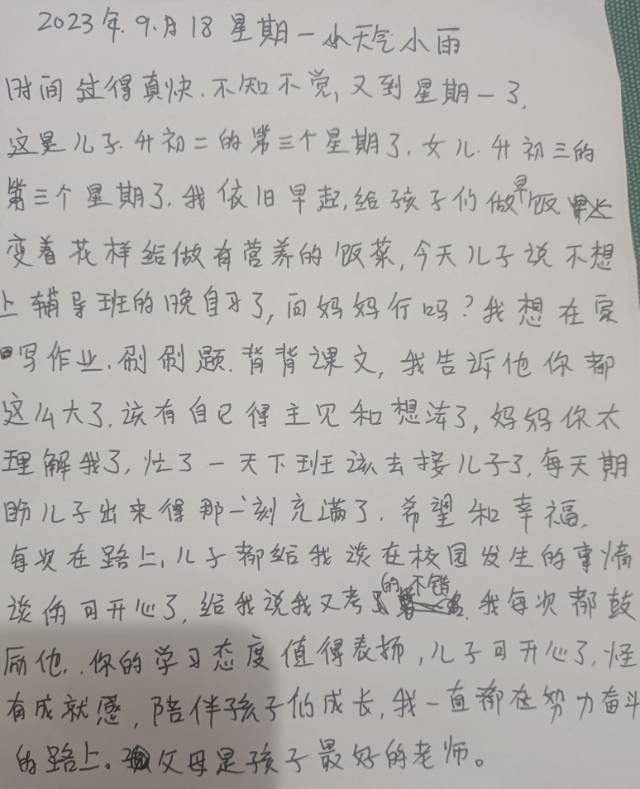 2023年.9.月18星期一 天气小雨
时间过得真快.不知不觉,又到星期一了,
这是儿子.升初二的第三个星期了,女儿.升初三的
第三个星期了.我依旧早起,给孩子们做早饭
变着花样给做有营养的饭菜,今天儿子说不想
上辅导班的晚自习了,问妈妈行吗?我想在家
写作业.刷刷题.背背课文,我告诉他你都
这么大了.该有自己得主见和想法了,妈妈你太
理解我了,忙了一天下班该去接儿子了,每天期
盼儿子出来得那一刻充满了.希望和幸福.
每次在路上,儿子都给我谈在校园发生的事情
谈的可开心了,给我说我又考的不错.我每次都鼓
励他.你的学习态度值得表扬,儿子可开心了,怪
有成就感,陪伴孩子们成长,我一直都在努力奋斗
的路上。父母是孩子最好的老师。